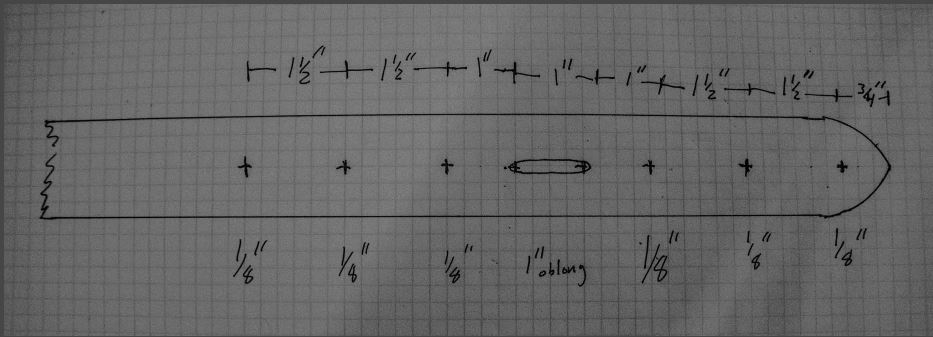 1 1/2" 1 1/2" 1" 1" 1" 1 1/2" 1 1/2" 3/4"
1/8" 1/8" 1/8" 1" oblong 1/8" 1/8" 1/8"